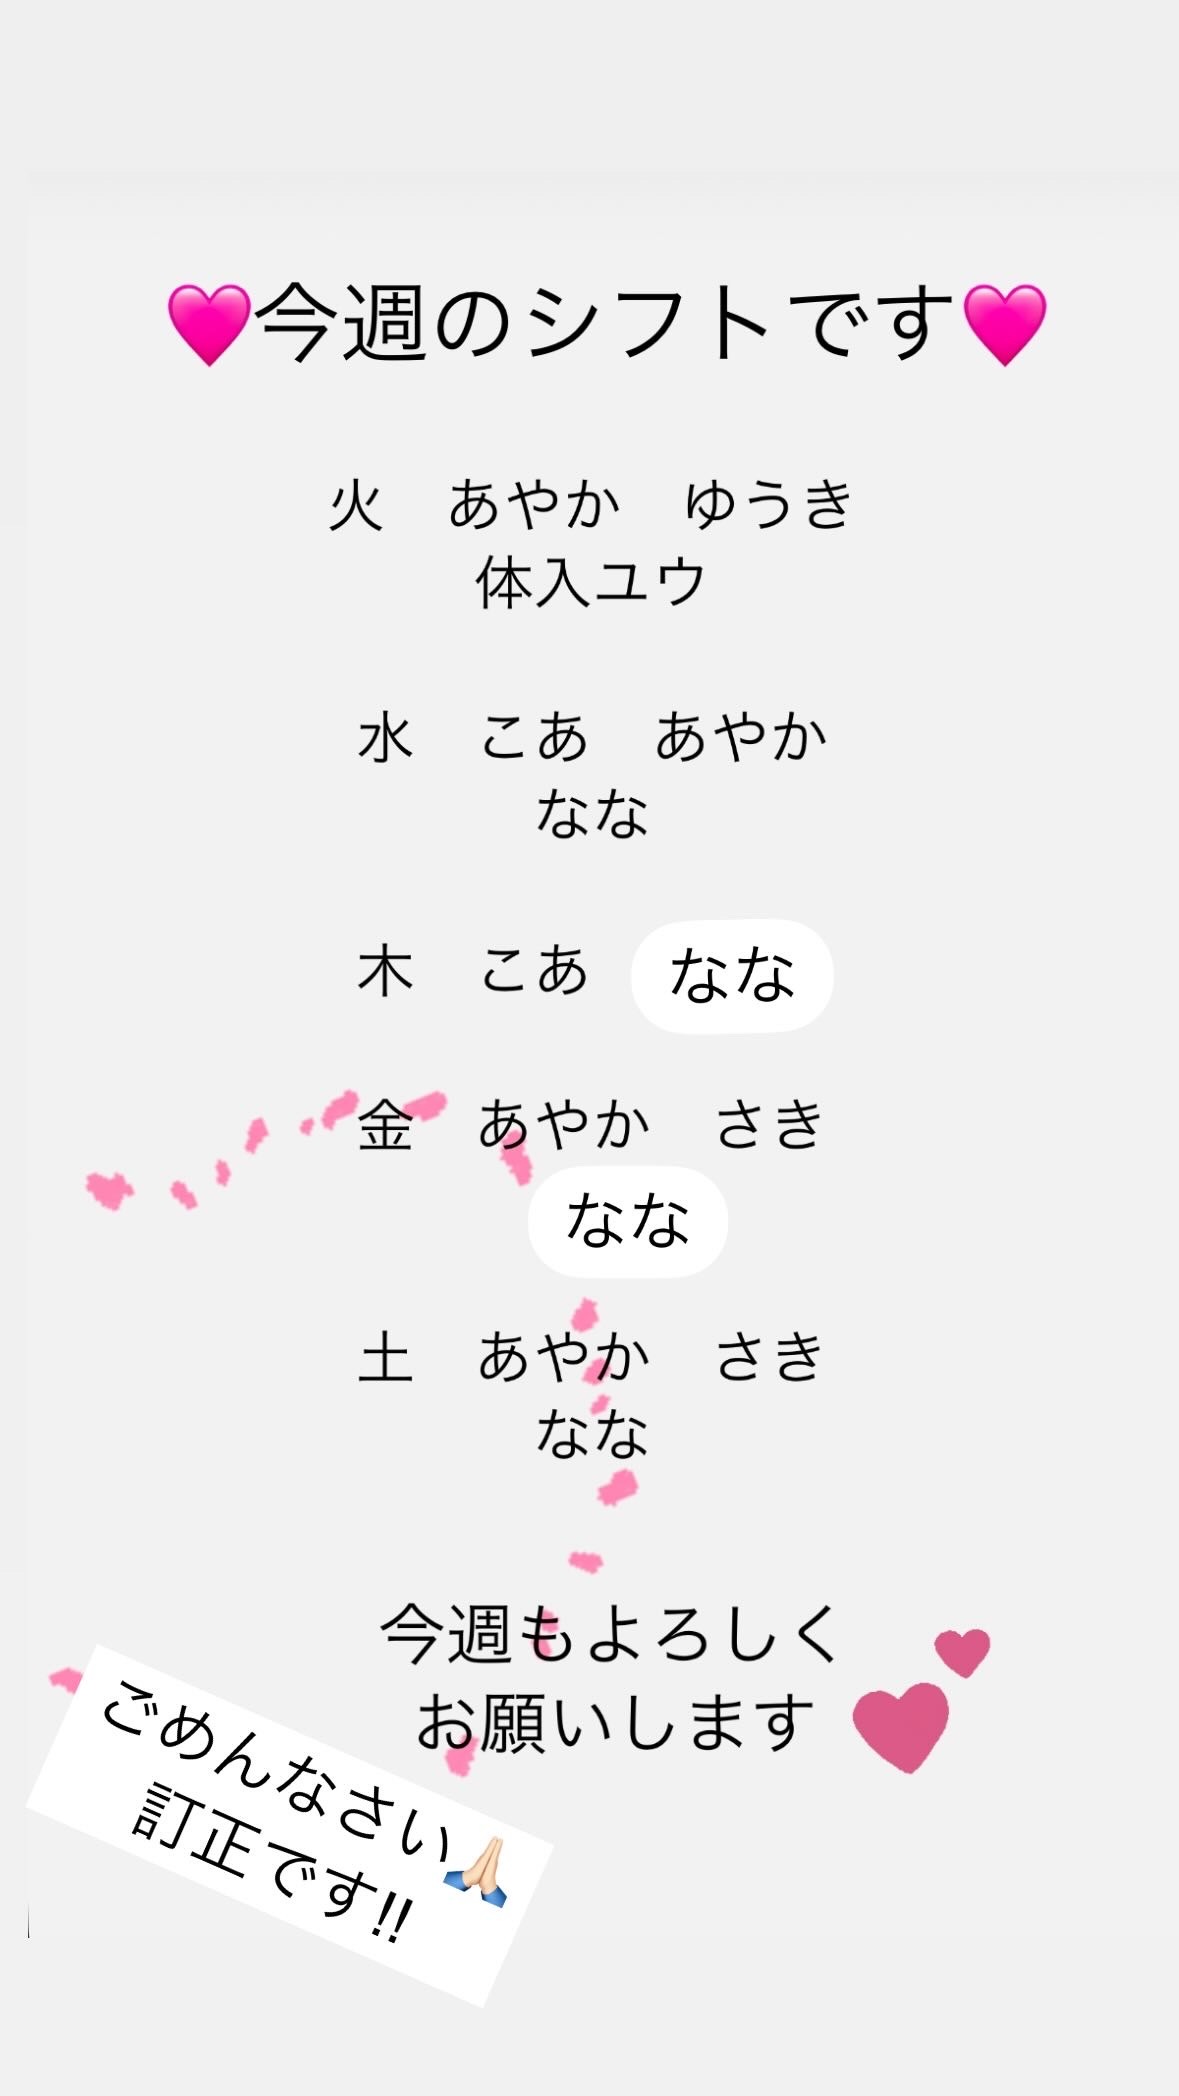 🩷今週のシフトです🩷
火　あやか　ゆうき
体入ユウ
水　こあ　あやか
なな
木　こあ　なな
金　あやか　さき
なな
土　あやか　さき
なな
今週もよろしく
お願いします
ごめんなさい🙏🏻
訂正です‼